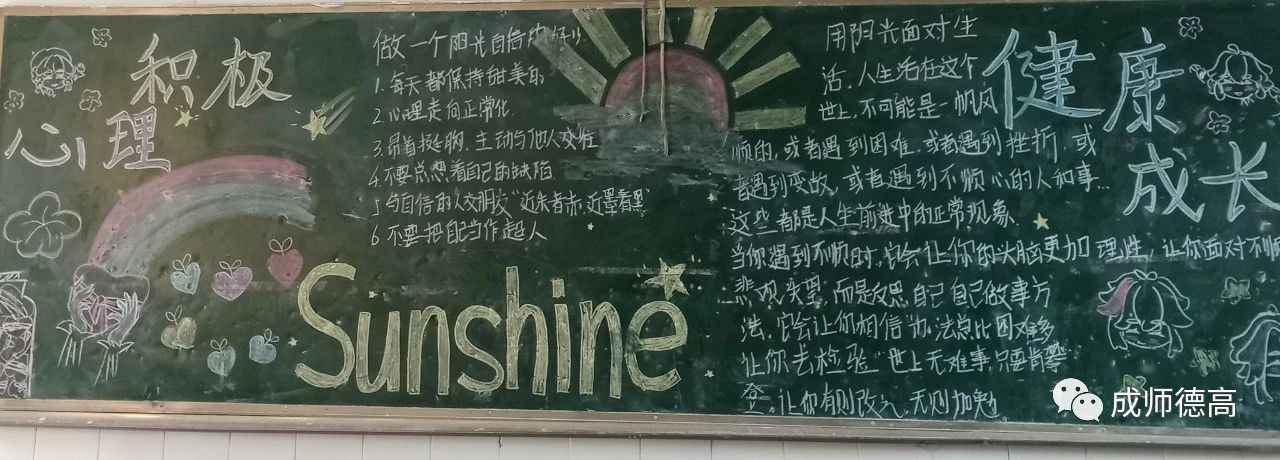 积极
心理
做一个阳光自信的
1.每天都保持甜美的
2.心理走向正常化
3.昂首挺胸,主动与他人交往
4.不要总想着自己的缺陷
5.与自信的人交朋友"近朱者赤,近墨者黑"
6.不要把自己当作超人
Sunshine
用阳光面对生
活,人生活在这个
世上,不可能是一帆风
顺的,或者遇到困难,或者遇到挫折,或
者遇到变故,或者遇到不顺心的人和事..
这些都是人生前进中的正常现象
当你遇到不顺时,它会让你的大脑更加理性,让你面对不顺
悲观失望,而是反思自己自己做事方
法,它会让你相信"办法总比困难多
让你去检验"世上无难事,只要肯攀
登",让你有则改之,无则加勉。
健康
成长
成师德高